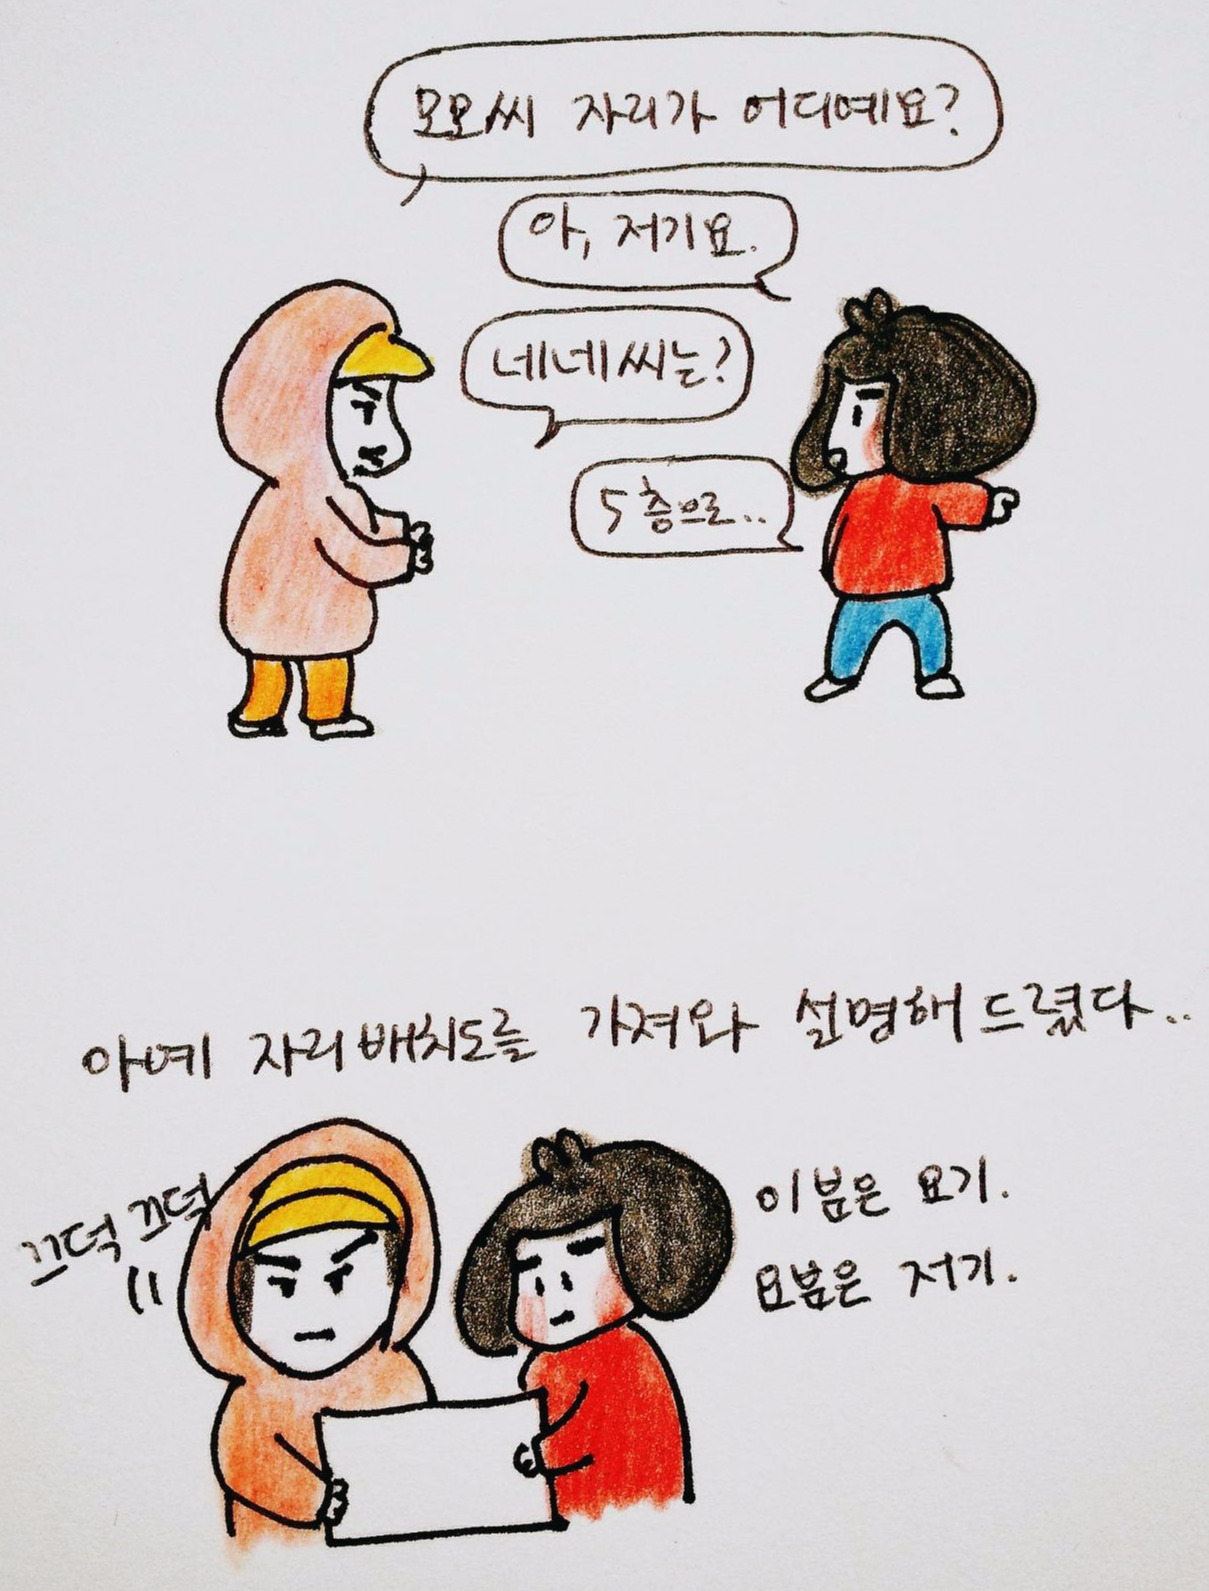 모모씨 자리가 어디예요?
아, 저기요.
네네씨는?
5층으로..
아예 자리배치도를 가져와 설명해 드렸다..
끄덕 끄덕
이분은 요기.
요분은 저기.